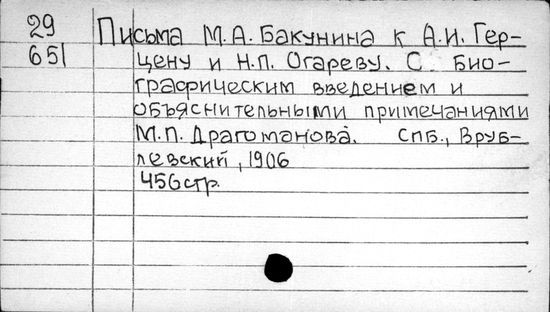 29 Письма М.А. Бакунина к А.И. Гер-
651 цену и Н.П. Огареву. С. био-
графическим введением и
объяснительными примечаниями
М.П. Драгоманова. СПБ., Вруб-
левский, 1906
456стр.